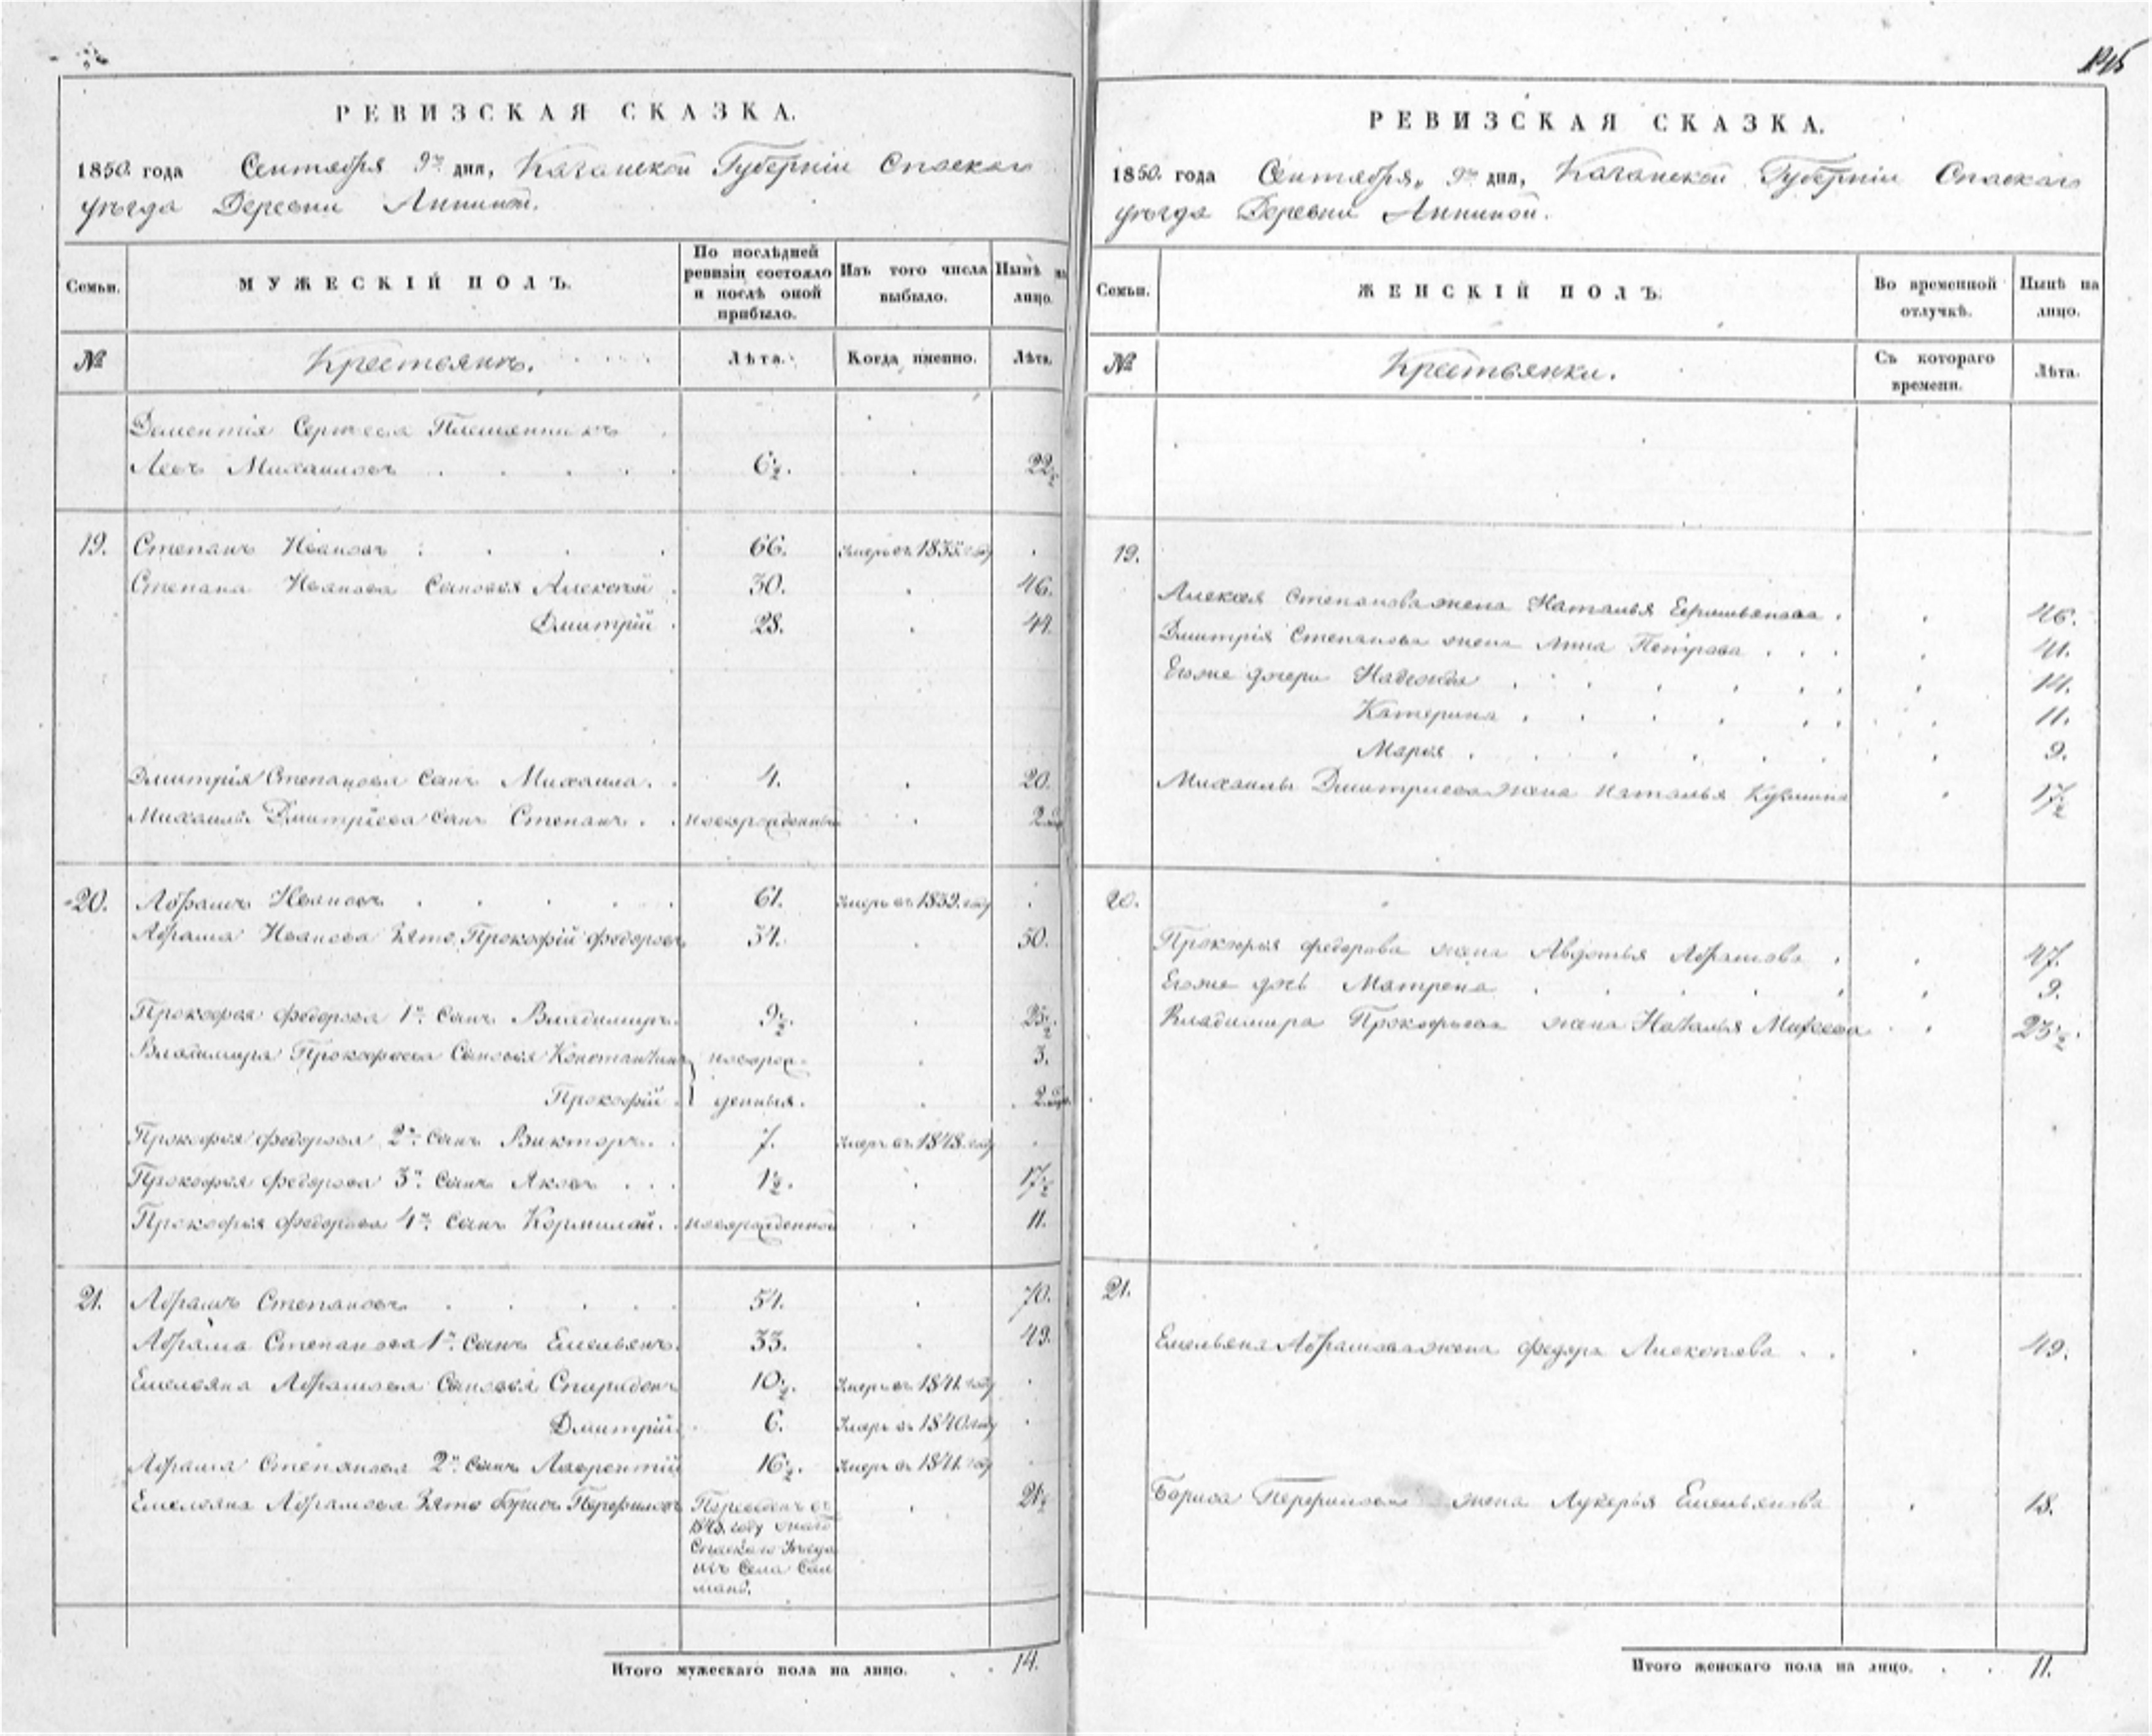 РЕВИЗСКАЯ СКАЗКА.
1850 года Сентября 9го дня, Казанской Губерніи Спаскаго
уѣзда Деревни Аниной.
Семьи.
МУЖЕСКІЙ ПОЛЪ.
По послѣдней
ревизіи состояло
и послѣ оной
прибыло.
Изъ того числа
выбыло.
Нынѣ на
лицо.
№
Крестьянъ.
Лѣта.
Когда именно.
Лѣта.
Дементія Сергеева Племянникъ
Левъ Михайловъ 6½. 22½
19. Степанъ Ивановъ 66. Умеръ въ году
Степана Иванова Сыновья Алексѣй 30. 46.
Дмитрій 28. 44.
Дмитрія Степанова сынъ Михаила. 4. 20.
Михаилы Дмитріева сынъ Степанъ. новорожденный 2
20. Абрамъ Ивановъ 61. Умеръ въ 1839. году
Абрама Иванова Зять Прокофій Федоровъ 34. 50.
Прокофья Федорова 1й. сынъ Владимиръ. 9½. 25½.
Владимира Прокофьева Сыновья Константинъ новорож- 3.
Прокофій денныя. 2
Прокофья Федорова 2й. сынъ Викторъ. 7. Умеръ въ 1848. году
Прокофья Федорова 3й. сынъ Яковъ 1½. 17½
Прокофья Федорова 4й. сынъ новорожденной 11.
21. Абрамъ Степановъ. 54. 70.
Абрама Степанова 1й. сынъ Емельянъ. 33. 49.
Емельяна Абрамова Сыновья Спиридонъ 10½. Умеръ въ 1841. году
Дмитрій 6. Умеръ въ 1840 году
Абрама Степанова 2й. сынъ Лаврентій 16½. Умеръ въ 1841. году
Емельяна Абрамова Зять Борисъ Перфиловъ Переведенъ въ 21½
году онаго
Спаскаго Уѣзда
изъ Села Сал
манъ.
Итого мужескаго пола на лицо. 14.
РЕВИЗСКАЯ СКАЗКА.
1850. года Сентября, 9го дня, Казанской Губерніи Спаскаго
уѣзда Деревни Аниной.
Семьи.
ЖЕНСКІЙ ПОЛЪ.
Во временной
отлучкѣ.
Нынѣ на
лицо.
№
Крестьянки.
Съ котораго
времени.
Лѣта.
19.
Алексея Степанова жена Наталья 46.
Дмитрія Степанова жена Анна Петрова 41.
Егоже дочери Надежда 14.
Катерина 11.
Марья 9.
Михаилы Дмитриева жена Наталья Кузмина 17½
20.
Прокофья Федорова жена Авдотья Абрамова 47.
Егоже дочь Матрена 9.
Владимира Прокофьева жена Наталья Михеева 23½.
21.
Емельяна Абрамова жена Федора Алексеева 49.
Бориса Перфилова жена Лукерья Емельянова 18.
Итого женскаго пола на лицо. 11.